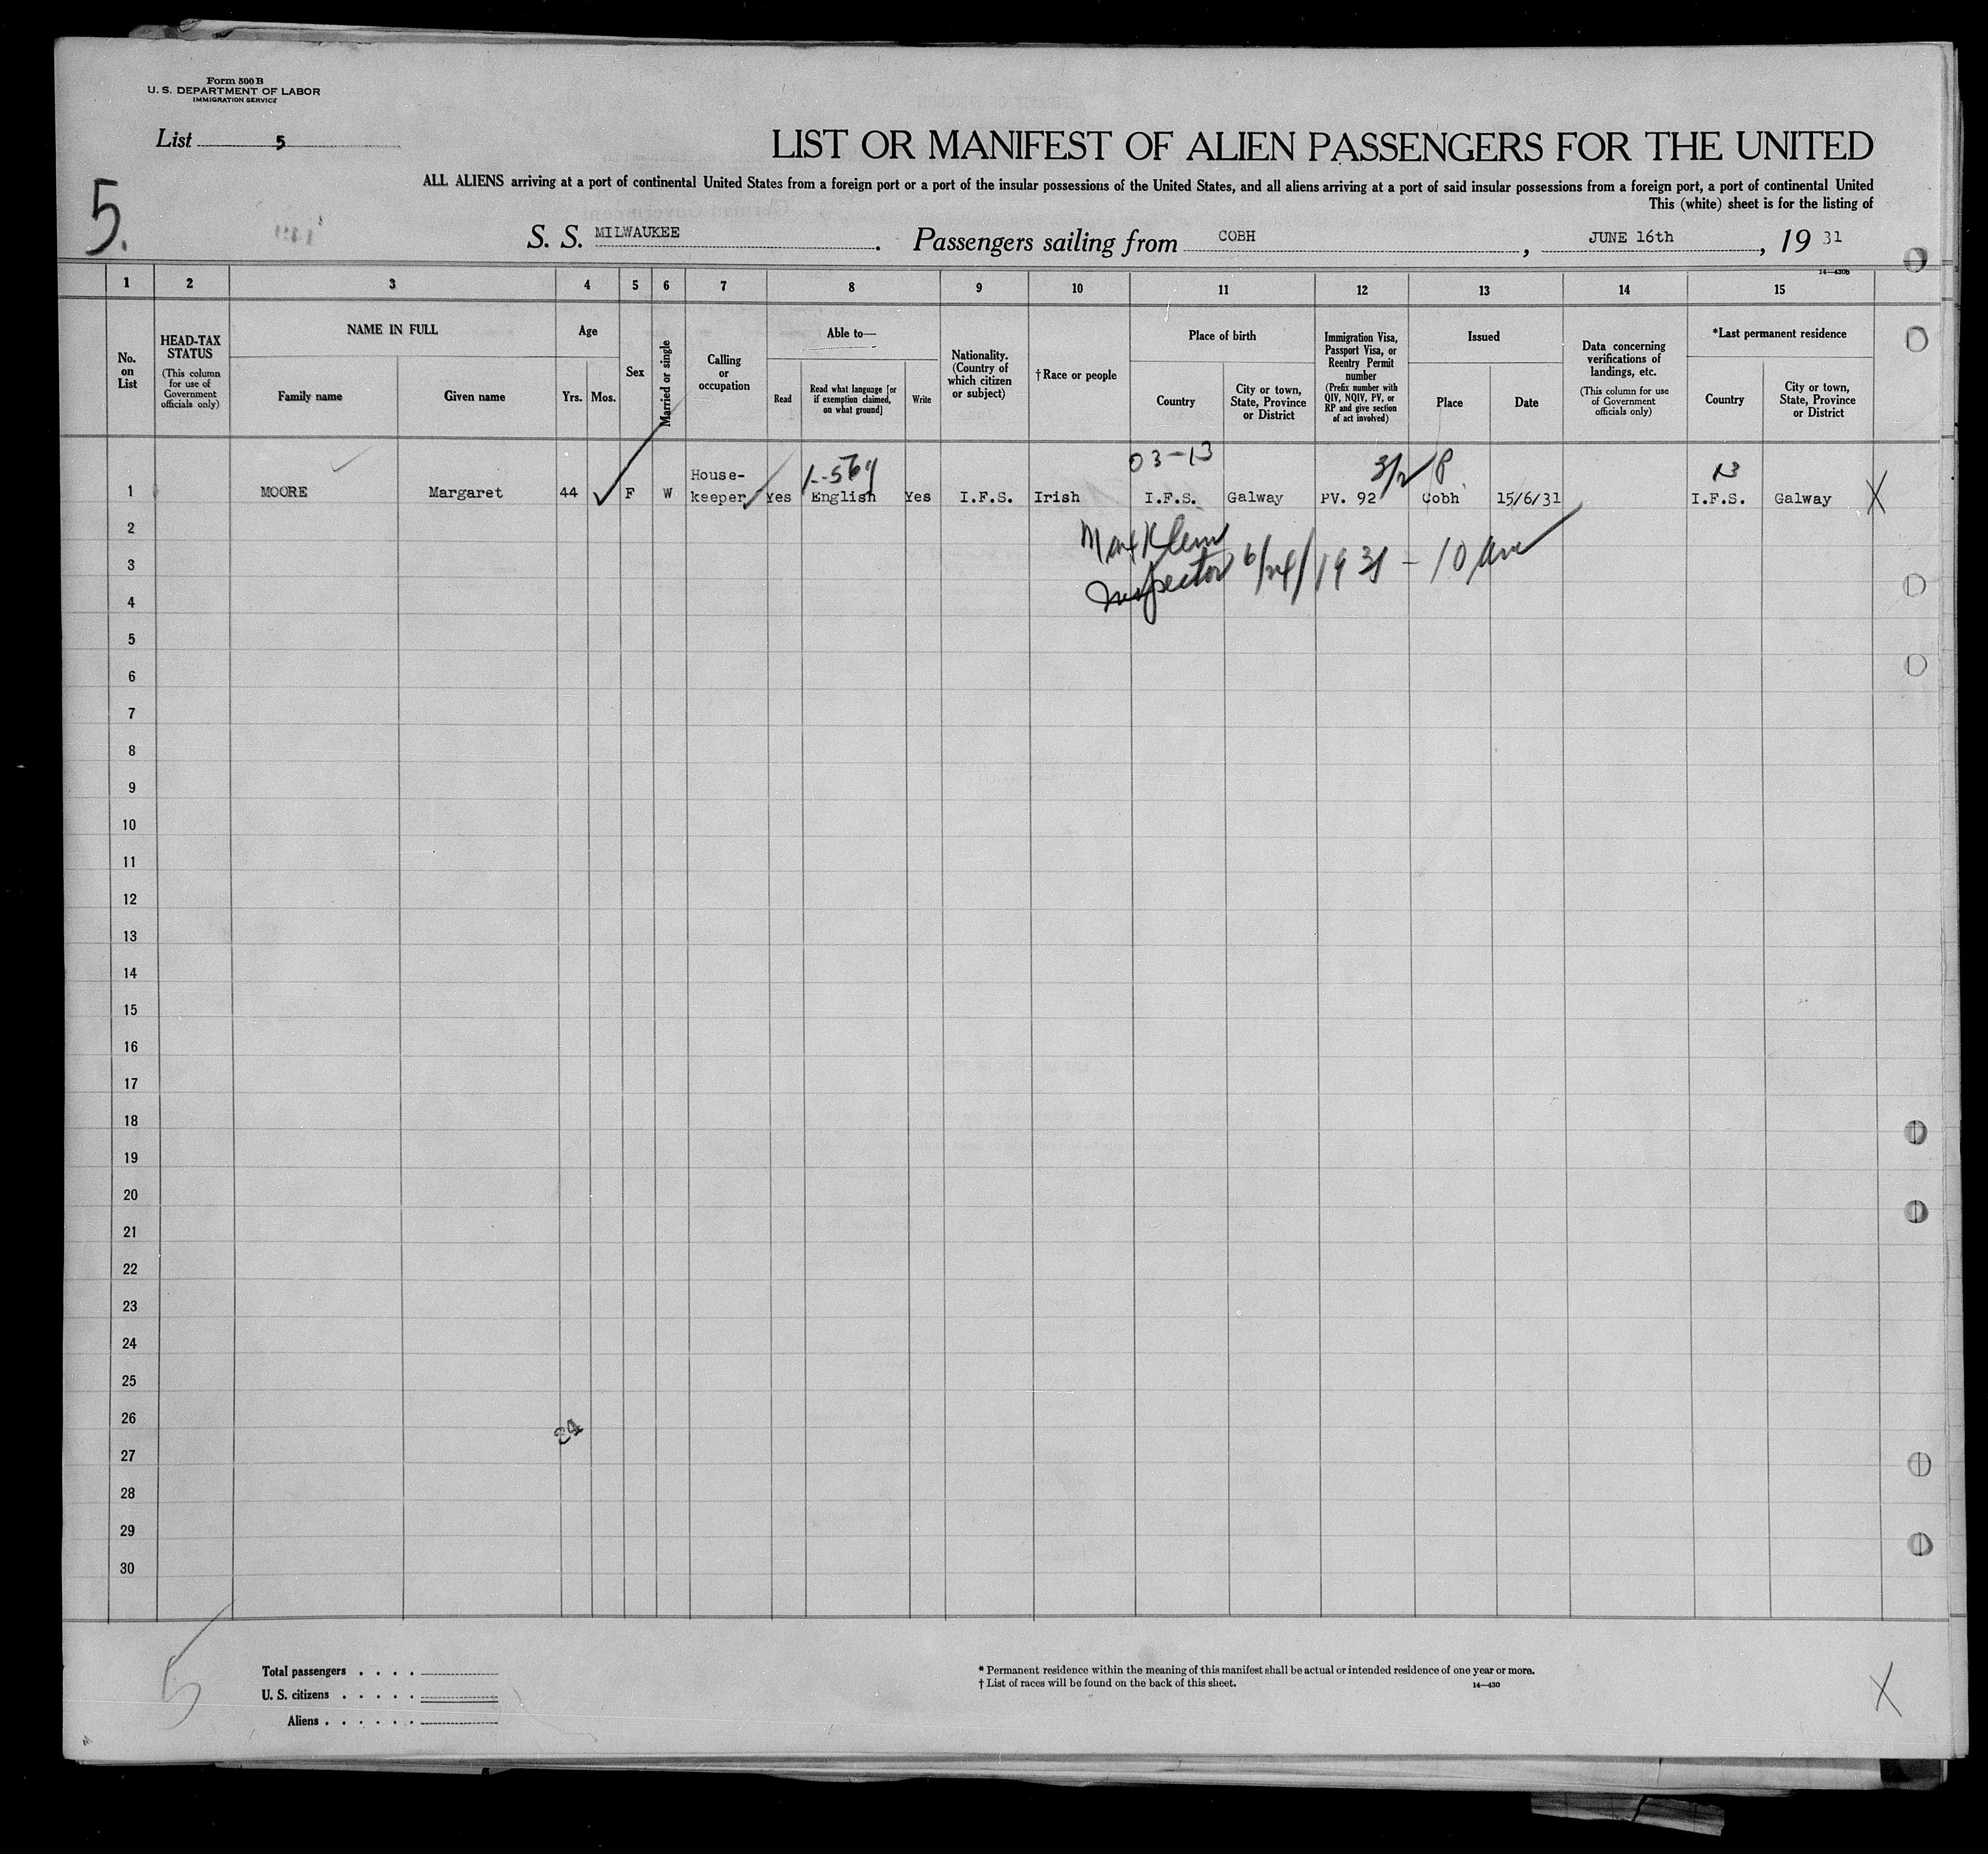 Form 500 B
U. S. DEPARTMENT OF LABOR
IMMIGRATION SERVICE
List 5
LIST OR MANIFEST OF ALIEN PASSENGERS FOR THE UNITED
ALL ALIENS arriving at a port of continental United States from a foreign port or a port of the insular possessions of the United States, and all aliens arriving at a port of said insular possessions from a foreign port, a port of continental United
This (white) sheet is for the listing of
5.
S. S. MILWAUKEE . Passengers sailing from COBH , JUNE 16th , 19 31
14—430b
1 2 3 4 5 6 7 8 9 10 11 12 13 14 15
No. on List
HEAD-TAX STATUS
(This column for use of Government officials only)
NAME IN FULL
Family name
Given name
Age
Yrs. Mos.
Sex
Married or single
Calling or occupation
Able to—
Read
Read what language [or if exemption claimed, on what ground]
Write
Nationality. (Country of which citizen or subject)
†Race or people
Place of birth
Country
City or town, State, Province or District
Immigration Visa, Passport Visa, or Reentry Permit number
(Prefix number with QIV, NQIV, PV, or RP and give section of act involved)
Issued
Place
Date
Data concerning verifications of landings, etc.
(This column for use of Government officials only)
*Last permanent residence
Country
City or town, State, Province or District
03-13
3/2 P
13
1 MOORE Margaret 44 F W House-keeper Yes English Yes I.F.S. Irish I.F.S. Galway PV. 92 Cobh 15/6/31 I.F.S. Galway X
Max Klein
Inspector 6/24/1931 - 10
2
3
4
5
6
7
8
9
10
11
12
13
14
15
16
17
18
19
20
21
22
23
24
25
26
24
27
28
29
30
5
Total passengers . . . .
U. S. citizens . . . . .
Aliens . . . . . .
* Permanent residence within the meaning of this manifest shall be actual or intended residence of one year or more.
† List of races will be found on the back of this sheet.
14—430
X